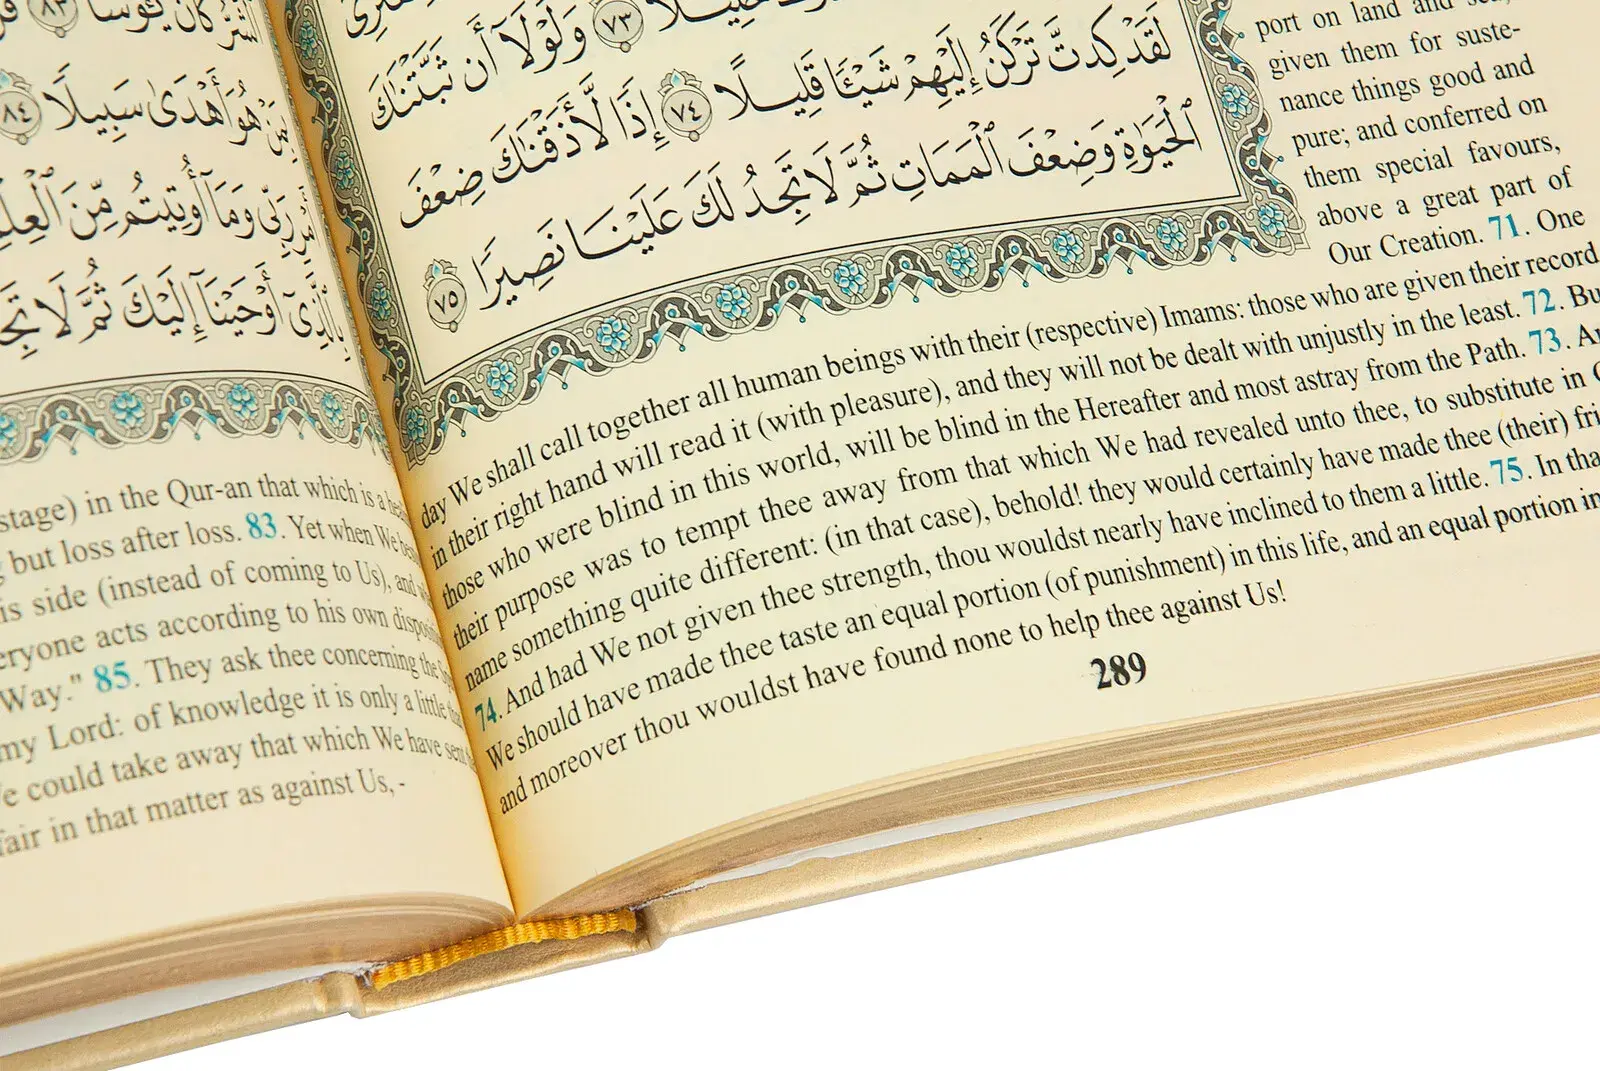 ٧٣ وَلَوْلَآ أَن ثَبَّتْنَٰكَ
لَقَدْ كِدتَّ تَرْكَنُ إِلَيْهِمْ شَيْـًٔا قَلِيـلًا ٧٤ إِذًا لَّأَذَقْنَٰكَ ضِعْفَ
ٱلْحَيَوٰةِ وَضِعْفَ ٱلْمَمَاتِ ثُمَّ لَا تَجِدُ لَكَ عَلَيْنَا نَصِيرًا ٧٥
port on land and sea,
given them for suste-
nance things good and
pure; and conferred on
them special favours,
above a great part of
Our Creation. 71. One
day We shall call together all human beings with their (respective) Imams: those who are given their record
in their right hand will read it (with pleasure), and they will not be dealt with unjustly in the least. 72. Bu
those who were blind in this world, will be blind in the Hereafter and most astray from the Path. 73. A
their purpose was to tempt thee away from that which We had revealed unto thee, to substitute in
name something quite different: (in that case), behold! they would certainly have made thee (their) fri
74. And had We not given thee strength, thou wouldst nearly have inclined to them a little. 75. In tha
We should have made thee taste an equal portion (of punishment) in this life, and an equal portion in
and moreover thou wouldst have found none to help thee against Us!
289
ٱلشَّرُّ كَانَ يَـُٔوسًا ٨٣
مَنْ هُوَ أَهْدَىٰ سَبِيلًا ٨٤
رَبِّى وَمَآ أُوتِيتُم مِّنَ
بِٱلَّذِىٓ أَوْحَيْنَآ إِلَيْكَ ثُمَّ لَا
stage) in the Qur-an that which is a
but loss after loss. 83. Yet when We
is side (instead of coming to Us), and
eryone acts according to his own
Way." 85. They ask thee concerning the
my Lord: of knowledge it is only a little
e could take away that which We have sent
fair in that matter as against Us, -